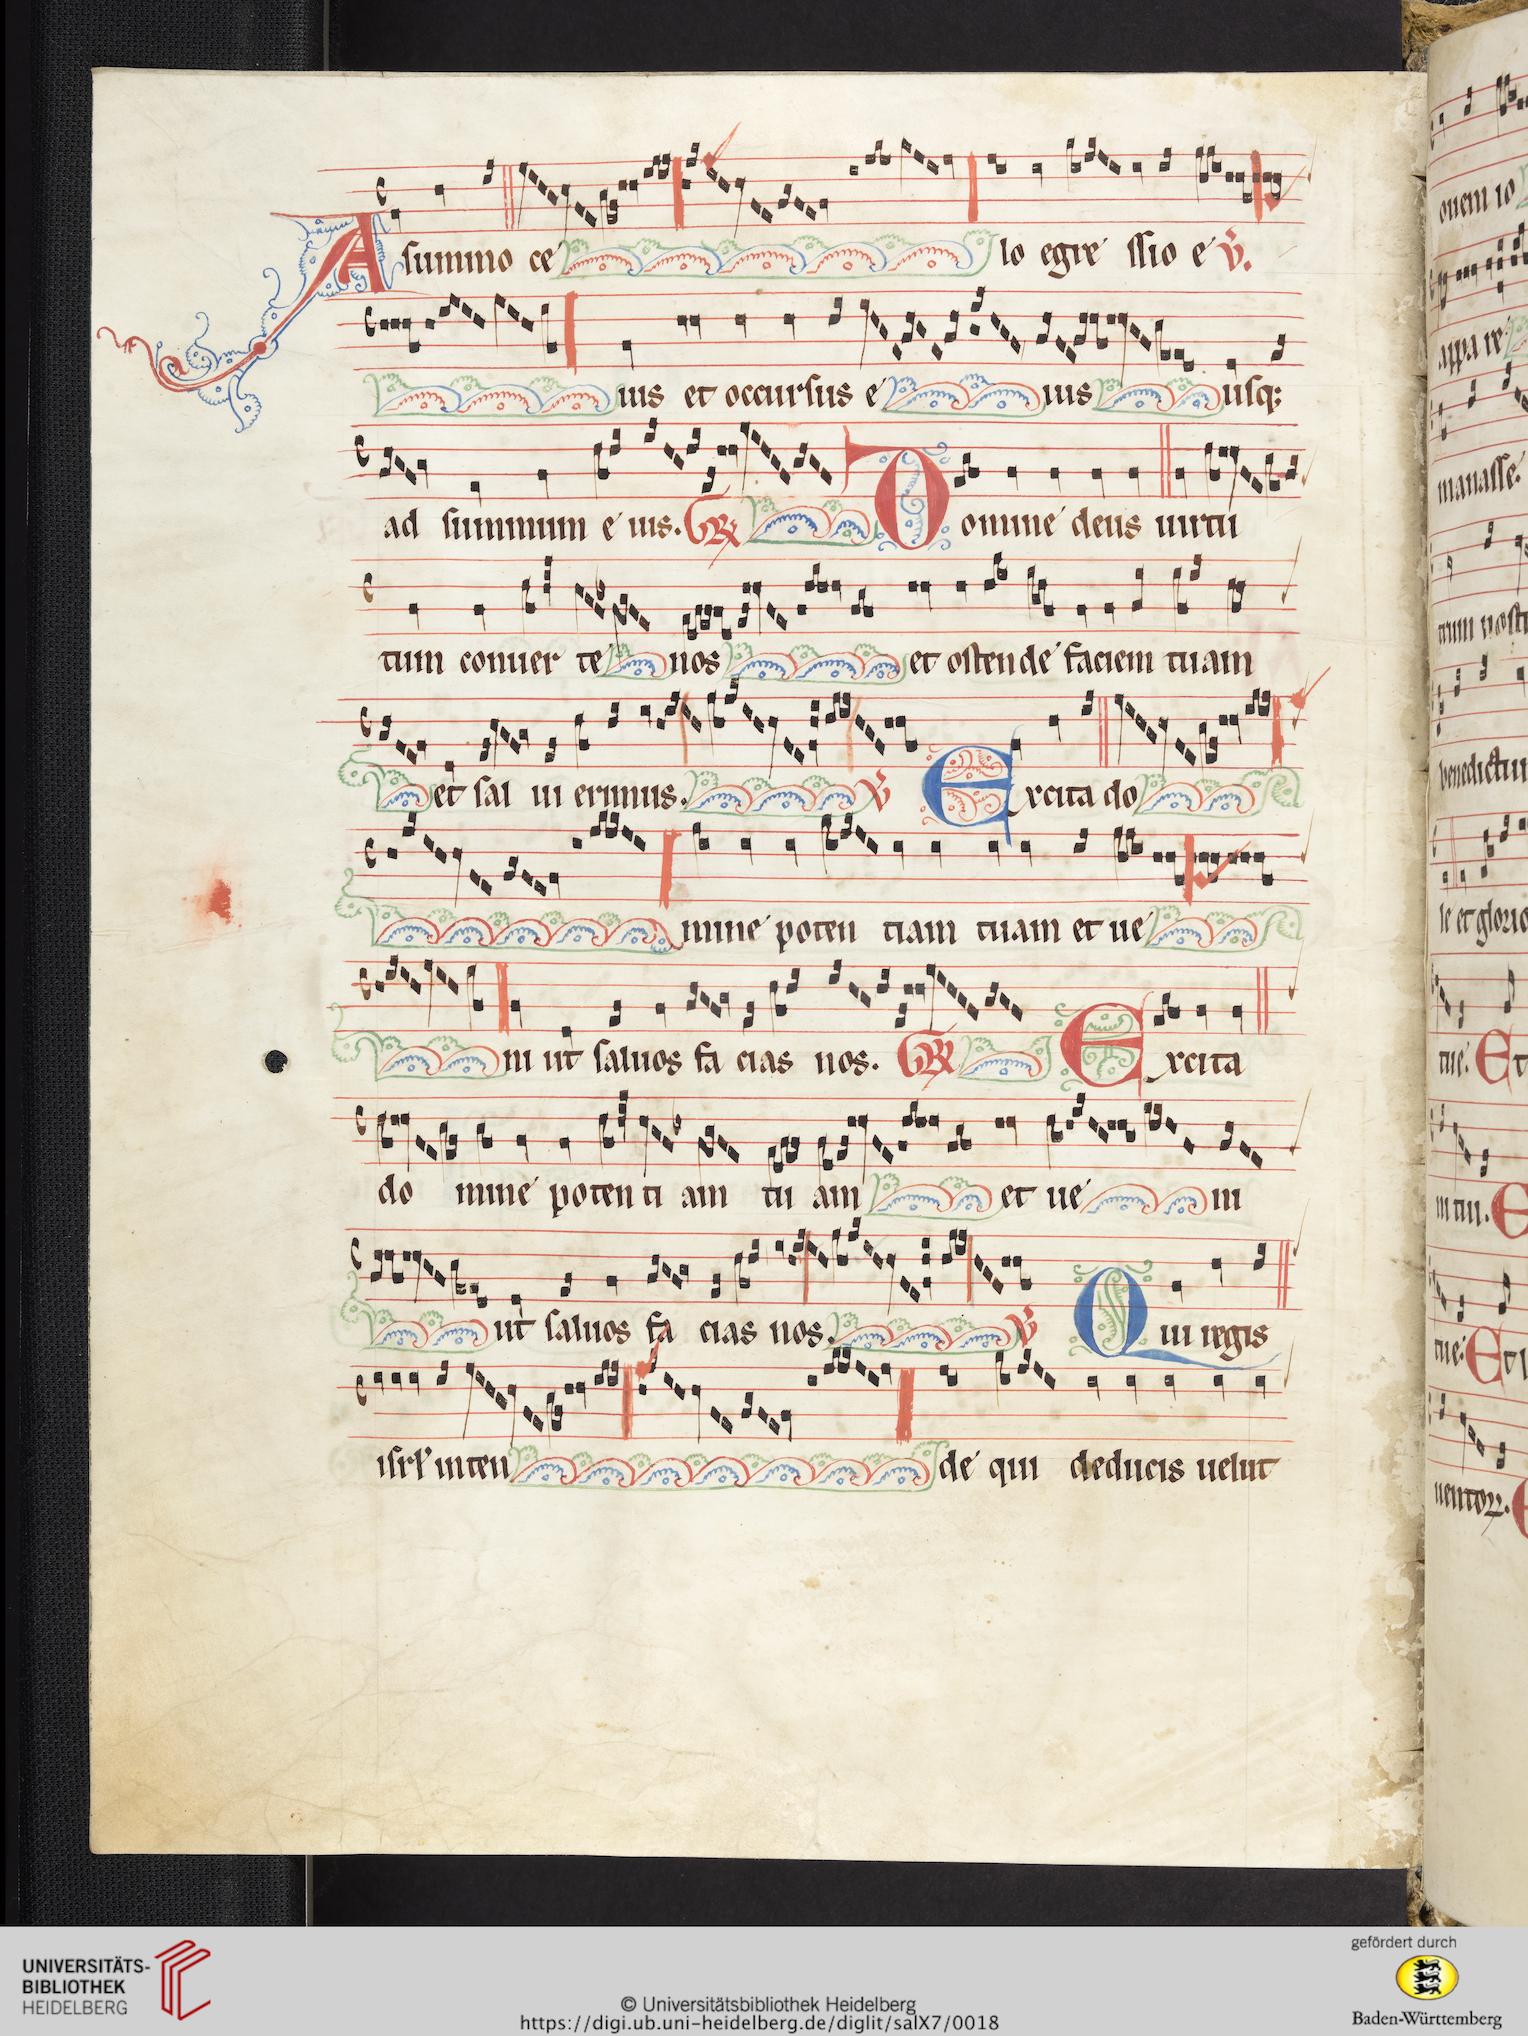 A summo ce lo egre ssio e v̄.
ius et occursus e ius usq;
ad summum e ius. GR Domine deus uirtu
tum conuer te nos et ostende faciem tuam
et sal ui erimus. V Excita do
mine poten tiam tuam et ue
ni ut saluos fa cias nos. GR Excita
do mine potenti am tu am et ue ni
ut saluos fa cias nos. V Qui regis
isrl' inten de qui deducis uelut
ouem io
appa re
manasse.
trum nostr
benedictu
le et glorio
tue. Et
ni tui. E
tue. Et
uentoꝝ. E
UNIVERSITÄTS-
BIBLIOTHEK
HEIDELBERG
© Universitätsbibliothek Heidelberg
https://digi.ub.uni-heidelberg.de/diglit/salX7/0018
gefördert durch
Baden-Württemberg